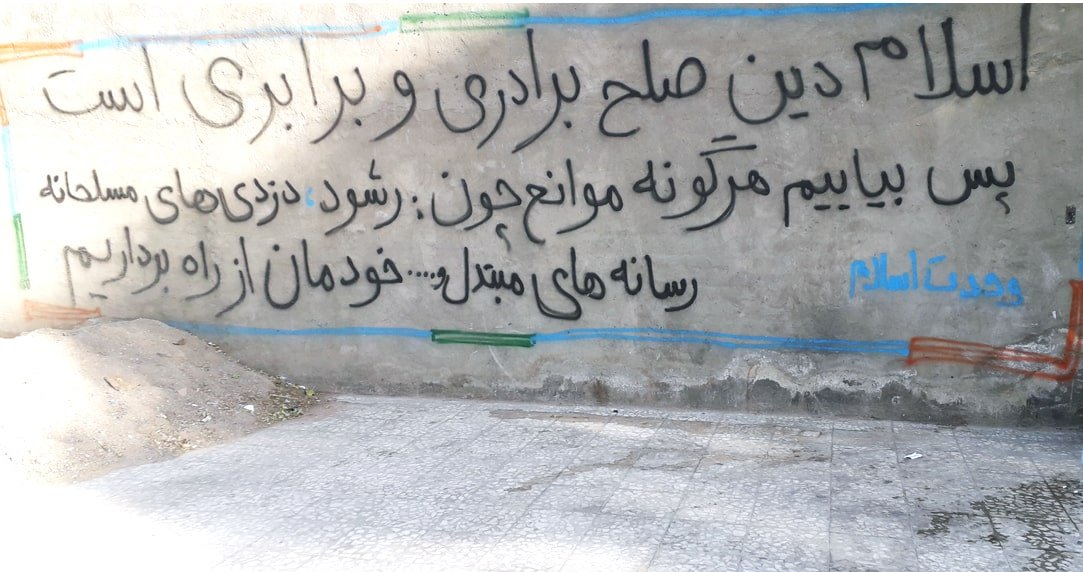 اسلام دین صلح برادری و برابری است
پس بیاییم هرگونه موانع چون: رشود، دزدی‌های مسلحانه
رسانه های مبتدل و.... خودمان از راه برداریم
وحدت اسلام